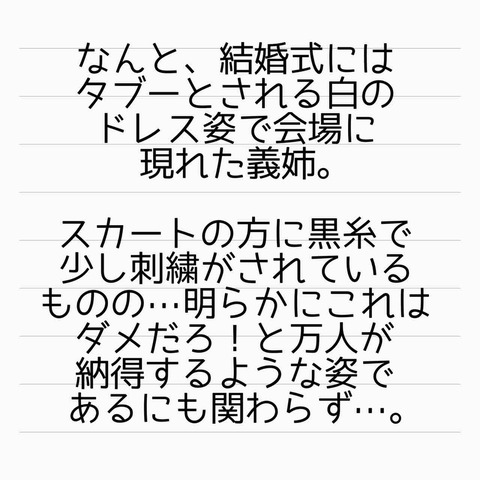 なんと、結婚式には
タブーとされる白の
ドレス姿で会場に
現れた義姉。
スカートの方に黒糸で
少し刺繍がされている
ものの…明らかにこれは
ダメだろ！と万人が
納得するような姿で
あるにも関わらず…。